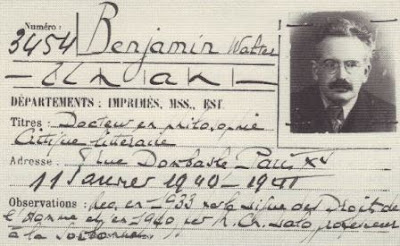 Numéro :
3454 Benjamin Walter
DÉPARTEMENTS : IMPRIMÉS, MSS., EST.
Titres : Docteur en philosophie
Critique littéraire
Adresse : rue Dombasle Paris XV
11 Janvier 1940 -
Observations : rec. en 1933 par la Ligue des Droits de
l'Homme et en 1940 par M. Ch. Lalo professeur
à la Sorbonne